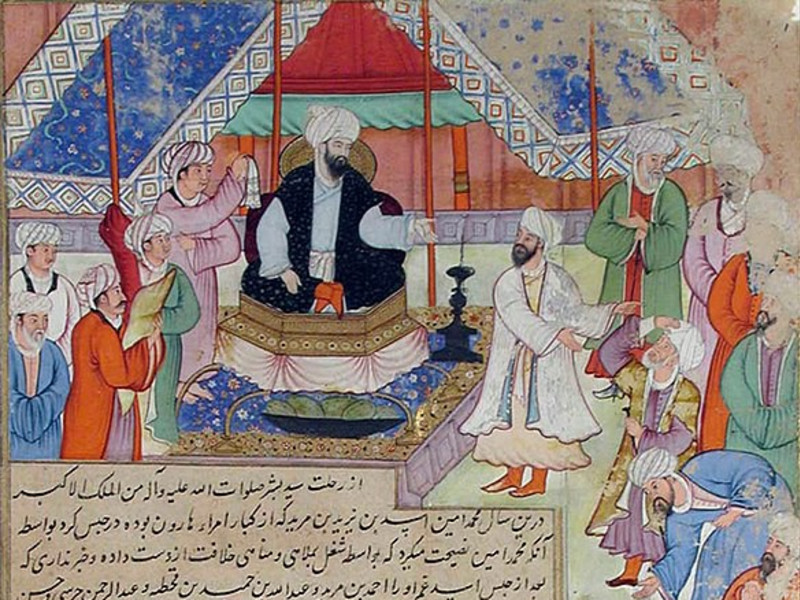 از رحلت سید بشر صلوات الله علیه وآله من الملک الاکبر
درین سال محمد امین اسید بن یزید بن مزید که از کبار امراء هارون بوده در حبس کرد بواسطه
آنکه محمد امین نصیحت میکرد که بواسطه شغل بملاهی و مناهی خلافت از دست داده و خبر نداری که
بعد از حبس اسید عم او را احمد بن مزید و عبدالله بن حمید بن قحطبه و عبدالرحمن و حسن